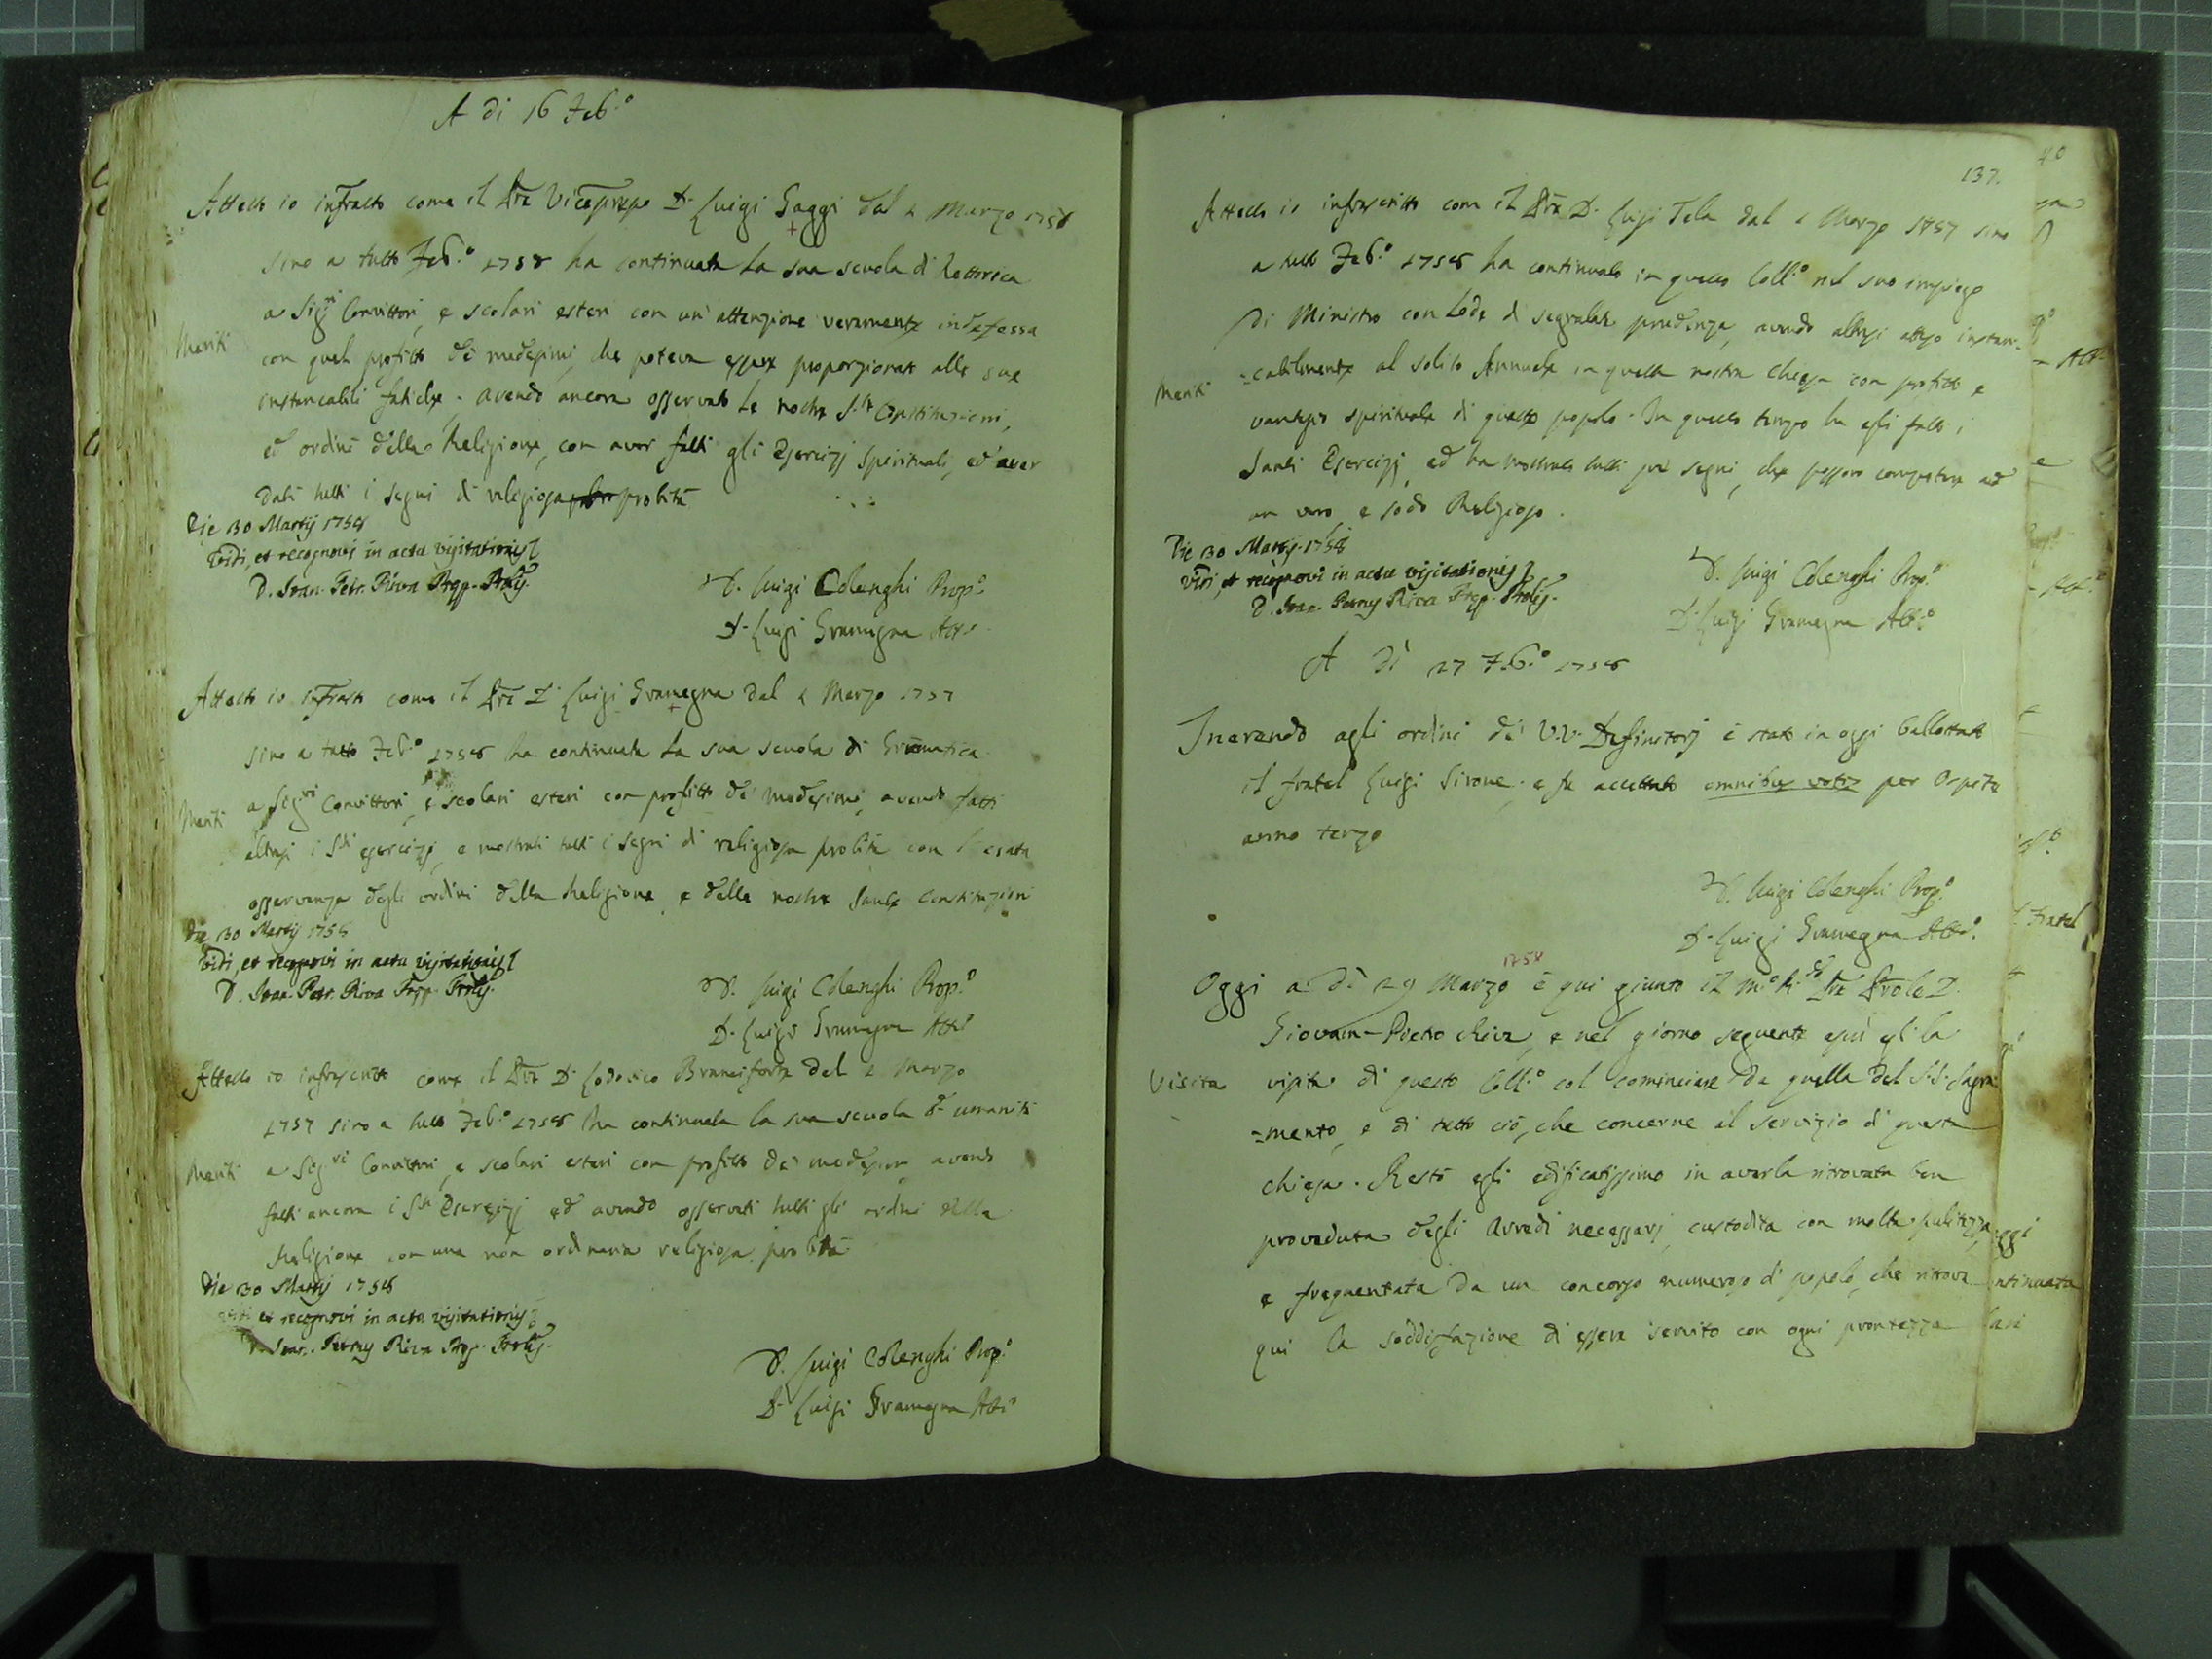 A di 16 Feb.o
Attesto io infratto come il Pre Vicepreposto D. Luigi Gaggi dal 2 Marzo 1758
sino a tutto Feb.o 1758 ha continuata la sua scuola di Rettorica
a Sigri Convittori, e scolari esteri con un' attenzione veramente indefessa
Meriti
con quel profitto de' medesimi, che poteva essere proporzionato alle sue
instancabili fatiche. avendo ancora osservato le nostre S.te Constituzioni,
ed ordini della Religione, con aver fatti gli Esercizj Spirituali, ed aver
dati tutti i segni di religiosa probità
Die 30 Martij 1758
Vidi, et recognovi in actu visitationis
D. Ioan. Petr. Riva Prep. Prolis.
D. Luigi Colenghi Prop.o
D. Luigi Gramegna Att.o
Attesto io infratto come il Pre D. Luigi Gramegna dal 2 Marzo 1757
sino a tutto Feb.o 1758 ha continuata la sua scuola di Gramatica
Meriti
a Sigri Convittori, e scolari esteri con profitto de' medesimi, avendo fatti
altresi i Sti esercizj, e mostrati tutti i segni di religiosa probità con l'esata
osservanza degli ordini della Religione, e delle nostre Sante Constituzioni
Die 30 Martij 1758
Vidi, et recognovi in actu visitationis
D. Ioan. Petr. Riva Prep. Prolis.
D. Luigi Colenghi Prop.o
D. Luigi Gramegna Att.o
Attesto io infrascritto come il Pre D. Lodovico Branciforte dal 2 Marzo
1757 sino a tutto Feb.o 1758 ha continuata la sua scuola d' umanità
Meriti
a Sigri Convittori, e scolari esteri con profitto de' medesimi avendo
fatti ancora i Sti Esercizj ed avendo osservati tutti gli ordini della
Religione con una non ordinaria religiosa probità
Die 30 Martij 1758
vidi et recognovi in actu visitationis
D. Ioan. Petrus Riva Prep. Prolis.
D. Luigi Colenghi Prop.o
D. Luigi Gramegna Att.o
137.
Attesto io infrascritto com il Pre D. Luigi Tela dal 2 Marzo 1757 sino
a tutto Feb.o 1758 ha continuato in questo Coll.o nel suo impiego
di Ministro con lode di segnalata prudenza, avendo altresi atteso instan-
Meriti
=cabilmente al solito Annuale in questa nostra chiesa con profitto e
vantagio spirituale di questo popolo. In questo tempo ha egli fatti i
Santi Esercizj, ed ha mostrato tutti que' segni, che possono competere ad
un vero, e sodo Religioso.
Die 30 Martij 1758
vidi, et recognovi in actu visitationis
D. Ioan. Petrus Riva Prep. Prolis.
D. Luigi Colenghi Prop.o
D. Luigi Gramegna Att.o
A dì 27 Feb.o 1758
Inerendo agli ordini de' V.V. Definitorj è stato in oggi ballottato
il fratel Luigi Sirone. e fu accettato omnibus votis per Ospite
anno terzo
D. Luigi Colenghi Prop.o
D. Luigi Gramegna Att.o
1758
Oggi a dì 29 Marzo è qui giunto il M.o R.do Pre Prole D.
Giovan-Pietro Riva, e nel giorno seguente aprì egli la
Visita
visita di questo Coll.o col cominciare da quella del S.S. Sagra-
=mento, e di tutto ciò, che concerne il servizio di questa
chiesa. Restò egli edificatissimo in averla ritrovata ben
proveduta degli arredi necessarj, custodita con molta pulitezza,
e frequentata da un concorso numeroso di popolo, che ritrova
qui la soddisfazione di essere servito con ogni prontezza